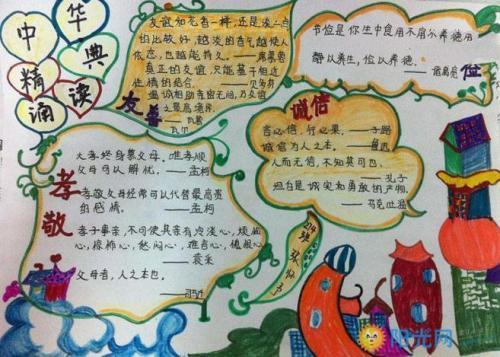 中华
精典
诵读
友谊如花香一样，还是淡一点
的比较好，越淡的香气越使人
依恋，也越能持久。——席慕蓉
真正的友谊，只能基于相近
性情的结合。——贝多芬
友善
节俭是你一生中食用不
静以养身，俭以养德。
——诸葛亮
俭
诚信
言必信，行必果。——子路
诚信为人之本。——鲁迅
人而无信，不知其可也。
——孔子
坦白是诚实和勇敢的产物。
——马克·吐温
孝敬
大孝终身慕父母。唯孝顺
父母可以解忧。——孟柯
孝敬父母经常可以代替最高贵
的感情。——孟柯
孝子事亲，不可使其亲有冷淡心，烦恼
心，惊怖心，愁闷心，难言心，愧恨心
——袁采
父母者，人之本也。
阳光网